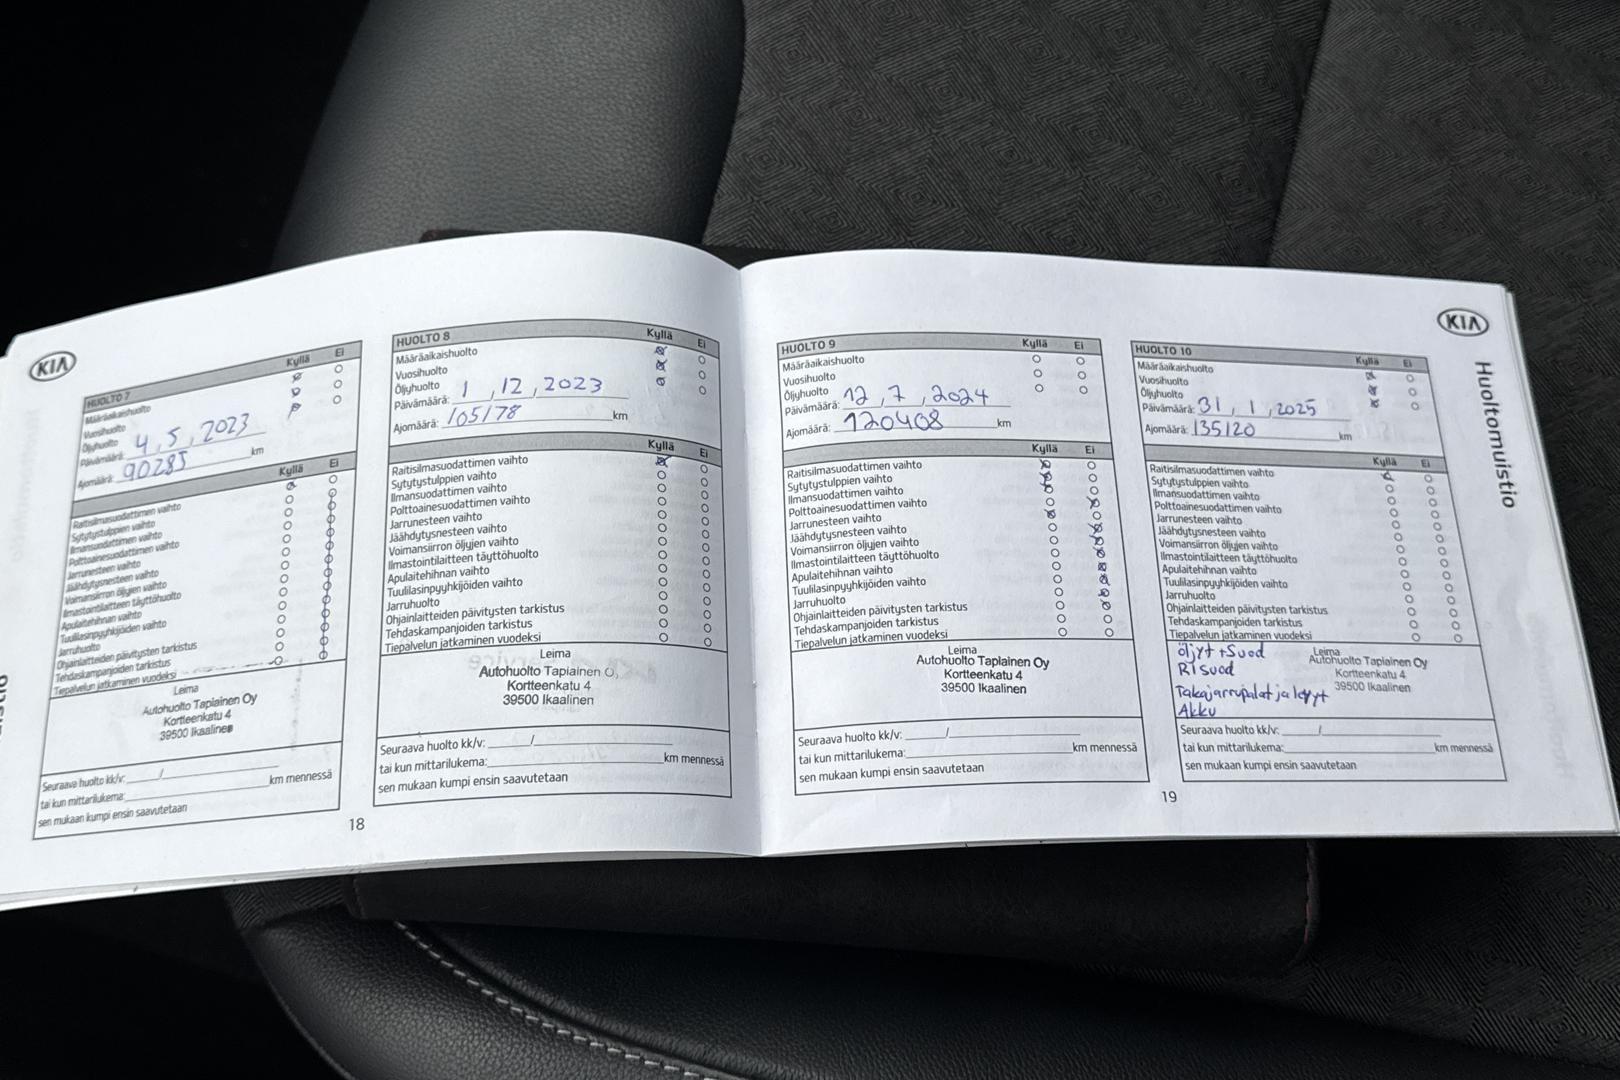 KIA
HUOLTO 7
Kyllä Ei
Määräaikaishuolto
Vuosihuolto
Öljyhuolto
Päivämäärä: 4 , 5 , 2023
Ajomäärä: 90285 km
Kyllä Ei
Raitisilmasuodattimen vaihto
Sytytystulppien vaihto
Ilmansuodattimen vaihto
Polttoainesuodattimen vaihto
Jarrunesteen vaihto
Jäähdytysnesteen vaihto
Voimansiirron öljyjen vaihto
Ilmastointilaitteen täyttöhuolto
Apulaitehihnan vaihto
Tuulilasinpyyhkijöiden vaihto
Jarruhuolto
Ohjainlaitteiden päivitysten tarkistus
Tehdaskampanjoiden tarkistus
Tiepalvelun jatkaminen vuodeksi
Leima
Autohuolto Taplainen Oy
Kortteenkatu 4
39500 Ikaalinen
Seuraava huolto kk/v: /
tai kun mittarilukema: km mennessä
sen mukaan kumpi ensin saavutetaan
HUOLTO 8
Kyllä Ei
Määräaikaishuolto
Vuosihuolto
Öljyhuolto
Päivämäärä: 1 , 12 , 2023
Ajomäärä: 105178 km
Kyllä Ei
Raitisilmasuodattimen vaihto
Sytytystulppien vaihto
Ilmansuodattimen vaihto
Polttoainesuodattimen vaihto
Jarrunesteen vaihto
Jäähdytysnesteen vaihto
Voimansiirron öljyjen vaihto
Ilmastointilaitteen täyttöhuolto
Apulaitehihnan vaihto
Tuulilasinpyyhkijöiden vaihto
Jarruhuolto
Ohjainlaitteiden päivitysten tarkistus
Tehdaskampanjoiden tarkistus
Tiepalvelun jatkaminen vuodeksi
Leima
Autohuolto Taplainen O
Kortteenkatu 4
39500 Ikaalinen
Seuraava huolto kk/v: /
tai kun mittarilukema: km mennessä
sen mukaan kumpi ensin saavutetaan
18
HUOLTO 9
Kyllä Ei
Määräaikaishuolto
Vuosihuolto
Öljyhuolto
Päivämäärä: 12 , 7 , 2024
Ajomäärä: 120408 km
Kyllä Ei
Raitisilmasuodattimen vaihto
Sytytystulppien vaihto
Ilmansuodattimen vaihto
Polttoainesuodattimen vaihto
Jarrunesteen vaihto
Jäähdytysnesteen vaihto
Voimansiirron öljyjen vaihto
Ilmastointilaitteen täyttöhuolto
Apulaitehihnan vaihto
Tuulilasinpyyhkijöiden vaihto
Jarruhuolto
Ohjainlaitteiden päivitysten tarkistus
Tehdaskampanjoiden tarkistus
Tiepalvelun jatkaminen vuodeksi
Leima
Autohuolto Taplainen Oy
Kortteenkatu 4
39500 Ikaalinen
Seuraava huolto kk/v: /
tai kun mittarilukema: km mennessä
sen mukaan kumpi ensin saavutetaan
HUOLTO 10
Kyllä Ei
Määräaikaishuolto
Vuosihuolto
Öljyhuolto
Päivämäärä: 31 , 1 , 2025
Ajomäärä: 135120 km
Kyllä Ei
Raitisilmasuodattimen vaihto
Sytytystulppien vaihto
Ilmansuodattimen vaihto
Polttoainesuodattimen vaihto
Jarrunesteen vaihto
Jäähdytysnesteen vaihto
Voimansiirron öljyjen vaihto
Ilmastointilaitteen täyttöhuolto
Apulaitehihnan vaihto
Tuulilasinpyyhkijöiden vaihto
Jarruhuolto
Ohjainlaitteiden päivitysten tarkistus
Tehdaskampanjoiden tarkistus
Tiepalvelun jatkaminen vuodeksi
öljyt + Suod
RI suod
Takajarrupalat ja levyt
Akku
Leima
Autohuolto Taplainen Oy
Kortteenkatu 4
39500 Ikaalinen
Seuraava huolto kk/v: /
tai kun mittarilukema: km mennessä
sen mukaan kumpi ensin saavutetaan
19
KIA
Huoltomuistio